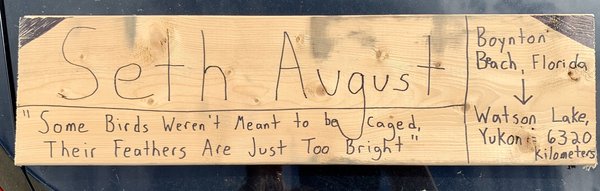 Seth August
"Some Birds Weren't Meant to be Caged,
Their Feathers Are Just Too Bright"
Boynton
Beach, Florida
↓
Watson Lake,
Yukon = 6320
Kilometers